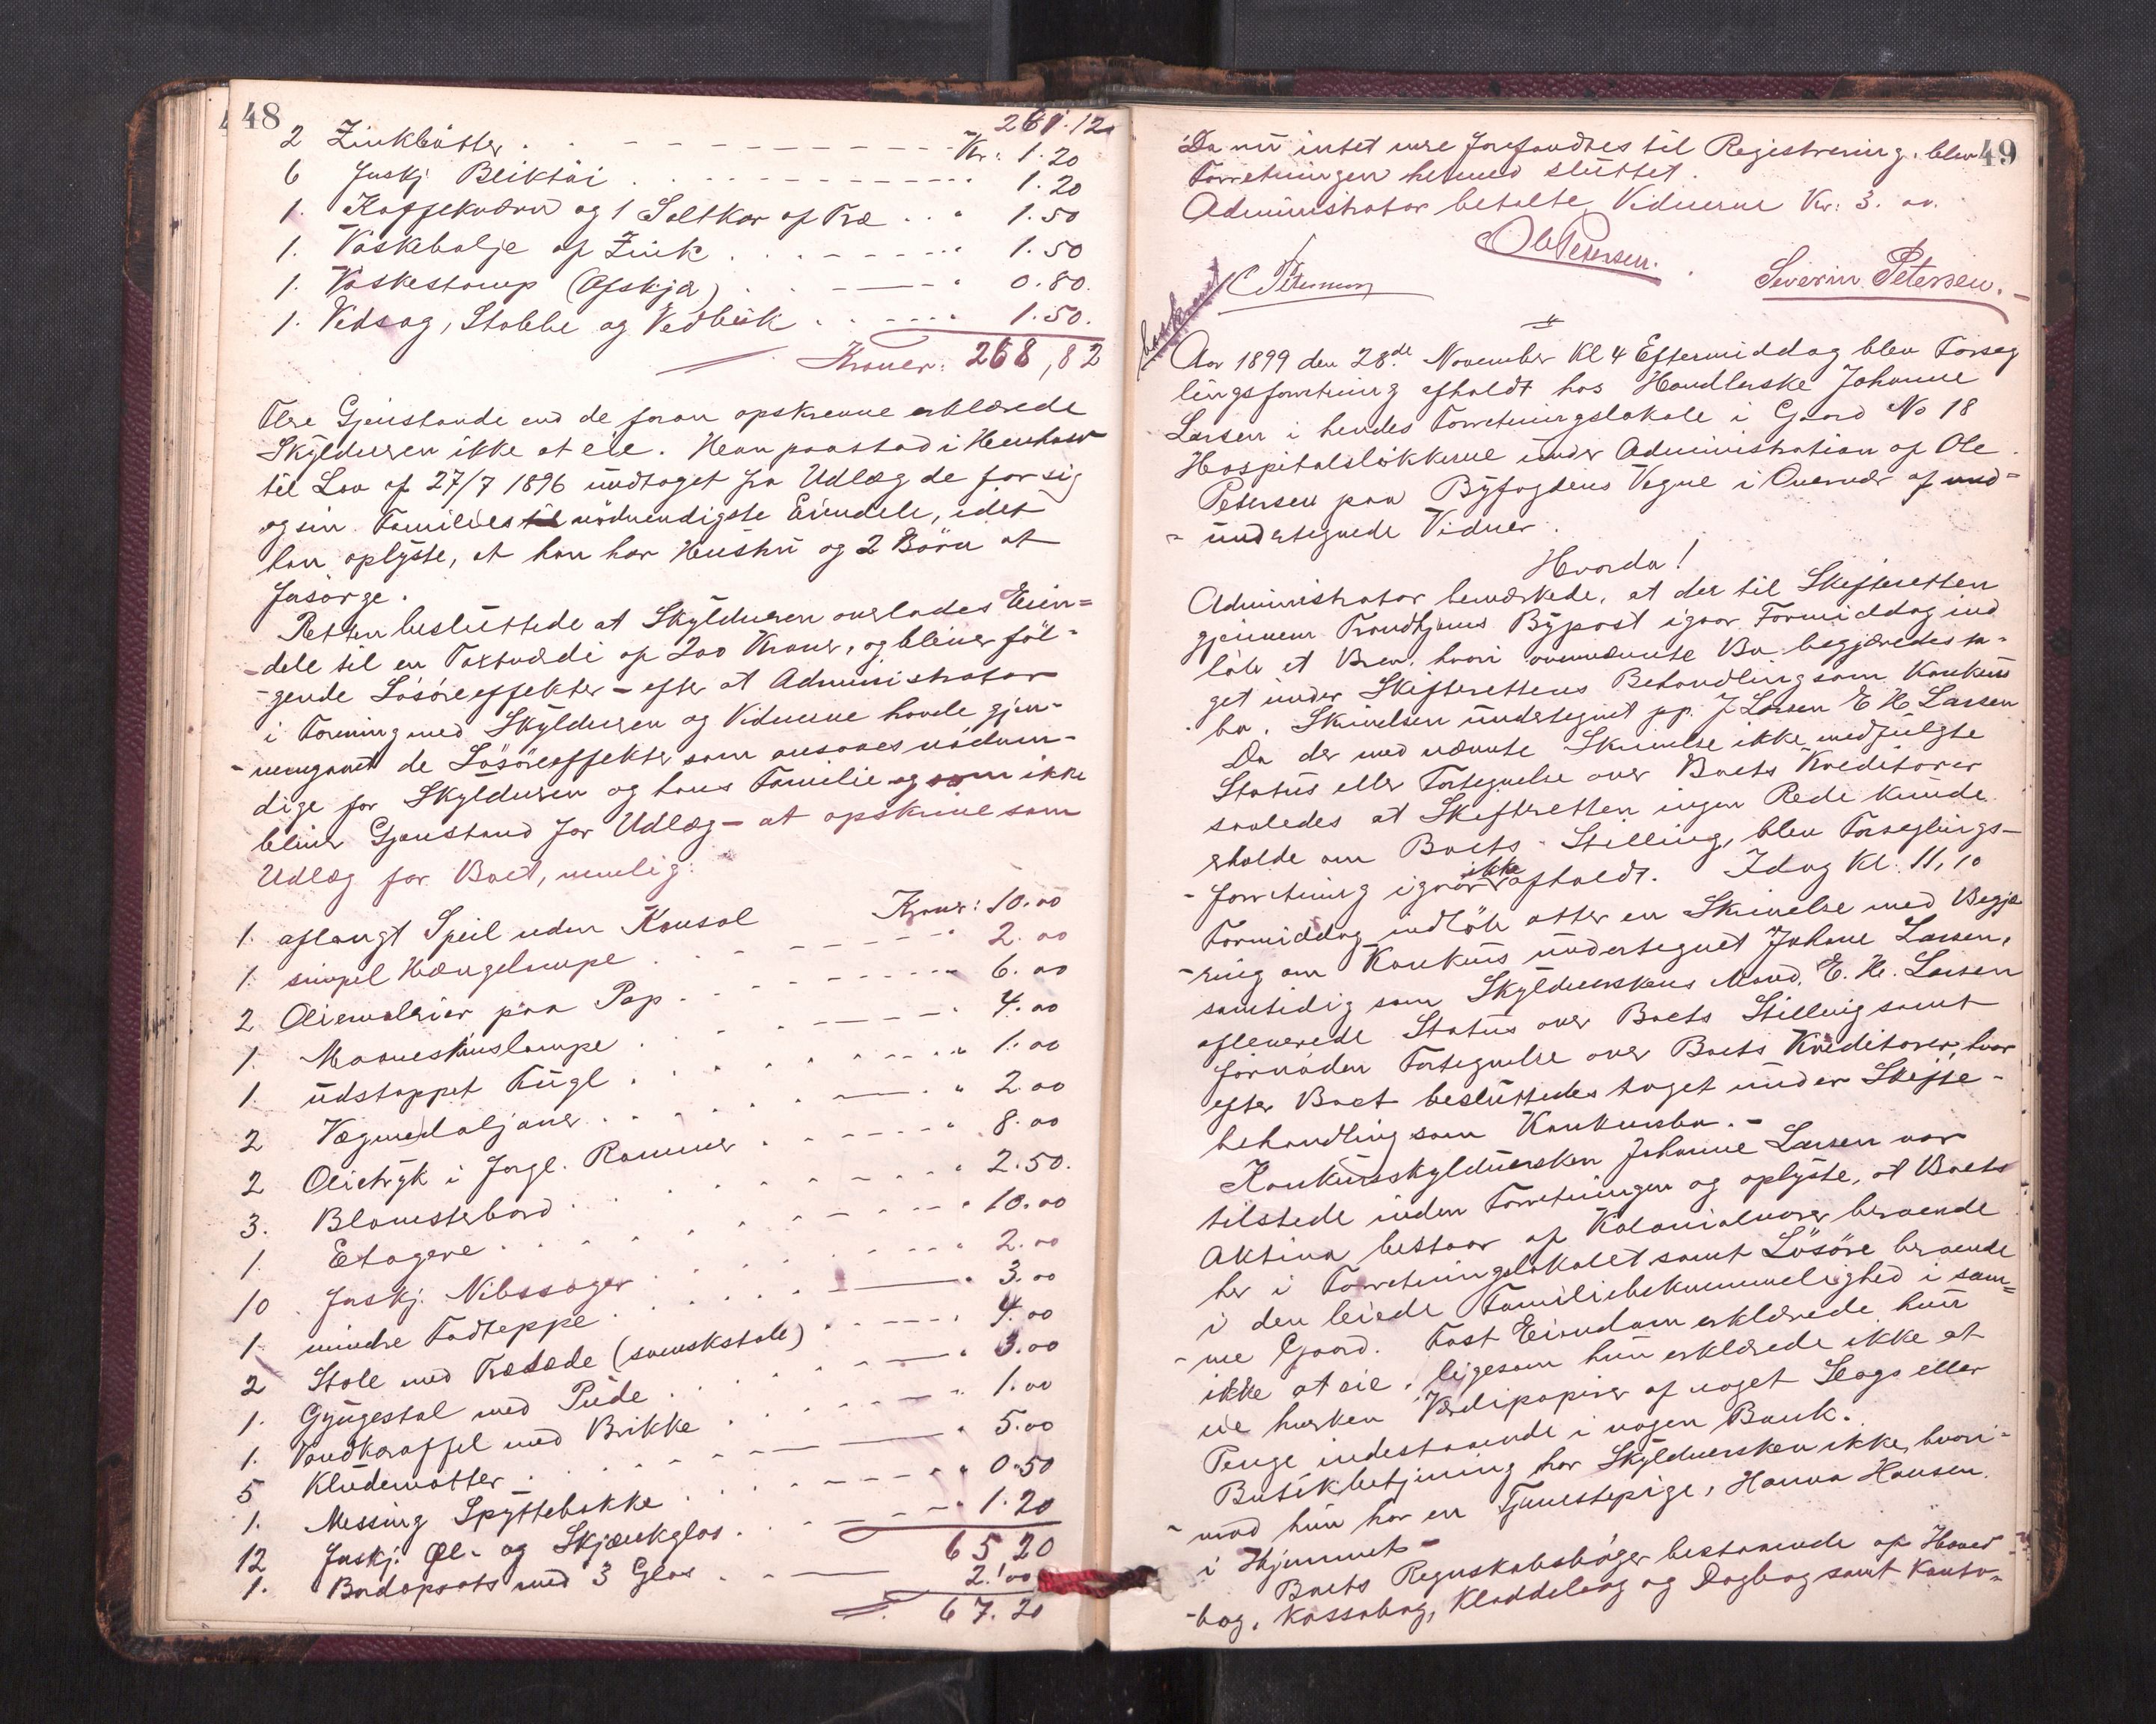 48
261.12
2 Zinkbøtter Kr: 1.20
6 forskj Bliktøi 1.20
1. Kaffekværn og 1 Saltkar af Træ 1.50
1. Vaskebalje af Zink 1.50
1. Vaskestamp (Afskja) 0.80.
1. Vedsag, Stabbe og Vedbuk 1.50.
Kroner: 268,82
Flere Gjenstande end de foran opskrevne erklærede
Skyldneren ikke at eie. Han paastod i Henhold
til Lov af 27/7 1896 undtaget fra Udlæg de for sig
og sin Families til nødvendigste Eiendele, idet
han oplyste, at han har Hustru og 2 Børn at
forsørge.
Retten besluttede at Skyldneren overlades Eien=
-dele til en Taxtværdi af 200 Kroner, og bliver føl-
-gende Løsøreeffekter - efter at Administrator
i Forening med Skyldneren og Vidnerne havde gjen-
-nemgaaet de Løsøreeffekter som ansaaes nødven-
dige for Skyldneren og hans Familie og som ikke
bliver Gjenstand for Udlæg - at opskrive som
Udlæg for Boet, nemlig:
1. aflangt Speil uden Konsol Kroner: 10.00
1. simpel Hængelampe 2.00
2 Oliemalerier paa Pap 6.00
1. Maaneskinslampe 4.00
1. udstoppet Fugl 1.00
2 Vægmedaljoner 2.00
2 Olietryk i forgl. Rammer 8.00
3. Blomsterbord 2.50.
1. Etagere 10.00
10. forskj. Nibssager 2.00
1. mindre Fodteppe 3.00
2 Stole med Træsæde (svenskstole) 4.00
1. Gyngestol med Pude 3.00
1. Vandkaraffel med Brikke 1.00
5 Kludematter 5.00
1. Messing Spyttebakke 0.50
12 forskj. Øl- og Skjænkglas 1.20
65 20
1. Bordopsats med 3 Glas 2.00
67.20
49
Da nu intet mere forefandtes til Registrering, blev
Forretningen hermed sluttet.
Administrator betalte Vidnerne Kr: 3.00.
Ole Petersen.
C Petersen
Severin Petersen.
Aar 1899 den 28de November Kl 4 Eftermiddag blev Forseg
lingsforretning afholdt hos Handlerske Johanne
Larsen i hendes Forretningslokale i Gaard No 18
Hospitalsløkkerne under Administration af Ole
Petersen paa Byfogdens Vegne i Overvær af und-
- undertegnede Vidner.
Hvorda!
Administrator bemærkede, at der til Skifteretten
gjennem Trondhjems Bypost igaar Formiddag ind
løb et Brev, hvori ovennævnte Bo begjæredes ta-
get under Skifterettens Behandling som Konkurs
bo. Skrivelsen undertegnet pp. J Larsen E H Larsen
Da der med nævnte Skrivelse ikke medfulgte
Status eller Fortegnelse over Boets Kreditorer
saaledes at Skifteretten ingen Rede kunde
erholde om Boets Stilling, blev Forseglings-
-forretning igaar ikke afholdt. Idag Kl. 11,10
Formiddag indløb atter en Skrivelse med Begjæ
-ring om Konkurs undertegnet Johanne Larsen,
samtidig som Skyldnerskens Mand, E. H. Larsen
afleverede Status over Boets Stilling samt
fornøden Fortegnelse over Boets Kreditorer, hvor
efter Boet besluttedes taget under Skifte-
behandling som Konkursbo.-
Konkursskyldnersken Johanne Larsen var
tilstede under Forretningen og oplyste, at Boets
Aktiva bestaar af Kolonialvarer beroende
her i Forretningslokalet samt Løsøre beroende
i den leiede Familiebekvemmelighed i sam=
-me Gaard. Fast Eiendom erklærede hun
ikke at eie, ligesom hun erklærede ikke at
eie hverken Værdipapirer af noget Slags eller
Penge indestaaende i nogen Bank.
Butikbetjening har Skyldnersken ikke, hvori-
-mod hun har en Tjenestepige, Hanna Hansen
i Hjemmet-
Boets Regnskabsbøger bestaaende af Hoved
-bog, Kassabog, Kladdebog og Dagbog samt Konto-